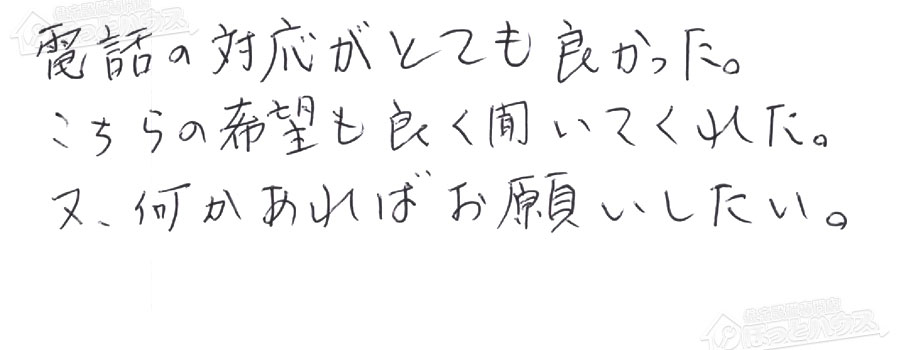 電話の対応がとても良かった。
こちらの希望も良く聞いてくれた。
又、何かあればお願いしたい。
ほっとハウス